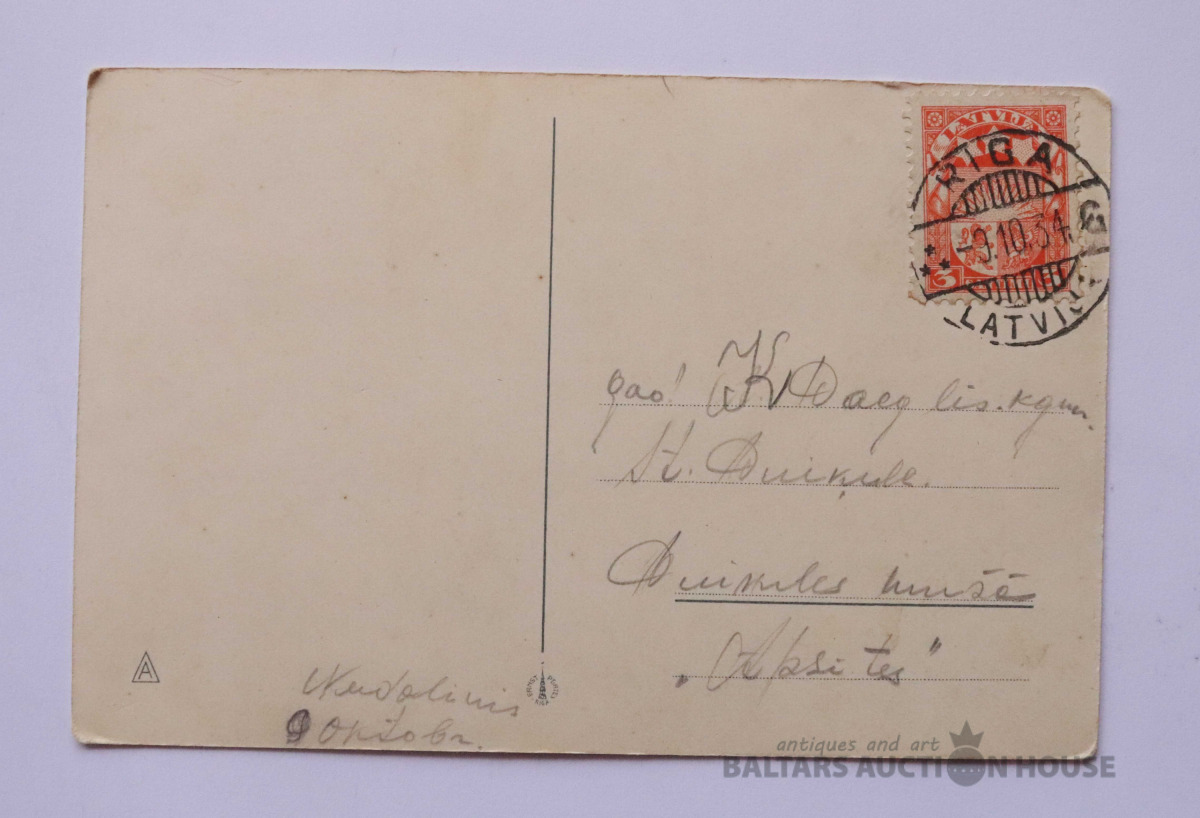 LATVIJA
3
RIGA
G
-9.10.34
LATVIJA
K. Daeg lis. kgm.
St. Duiķule.
Duikules muižā
„Apsītes"
Nedolinis
9 Oktobr.
A
antiques and art
BALTARS AUCTION HOUSE